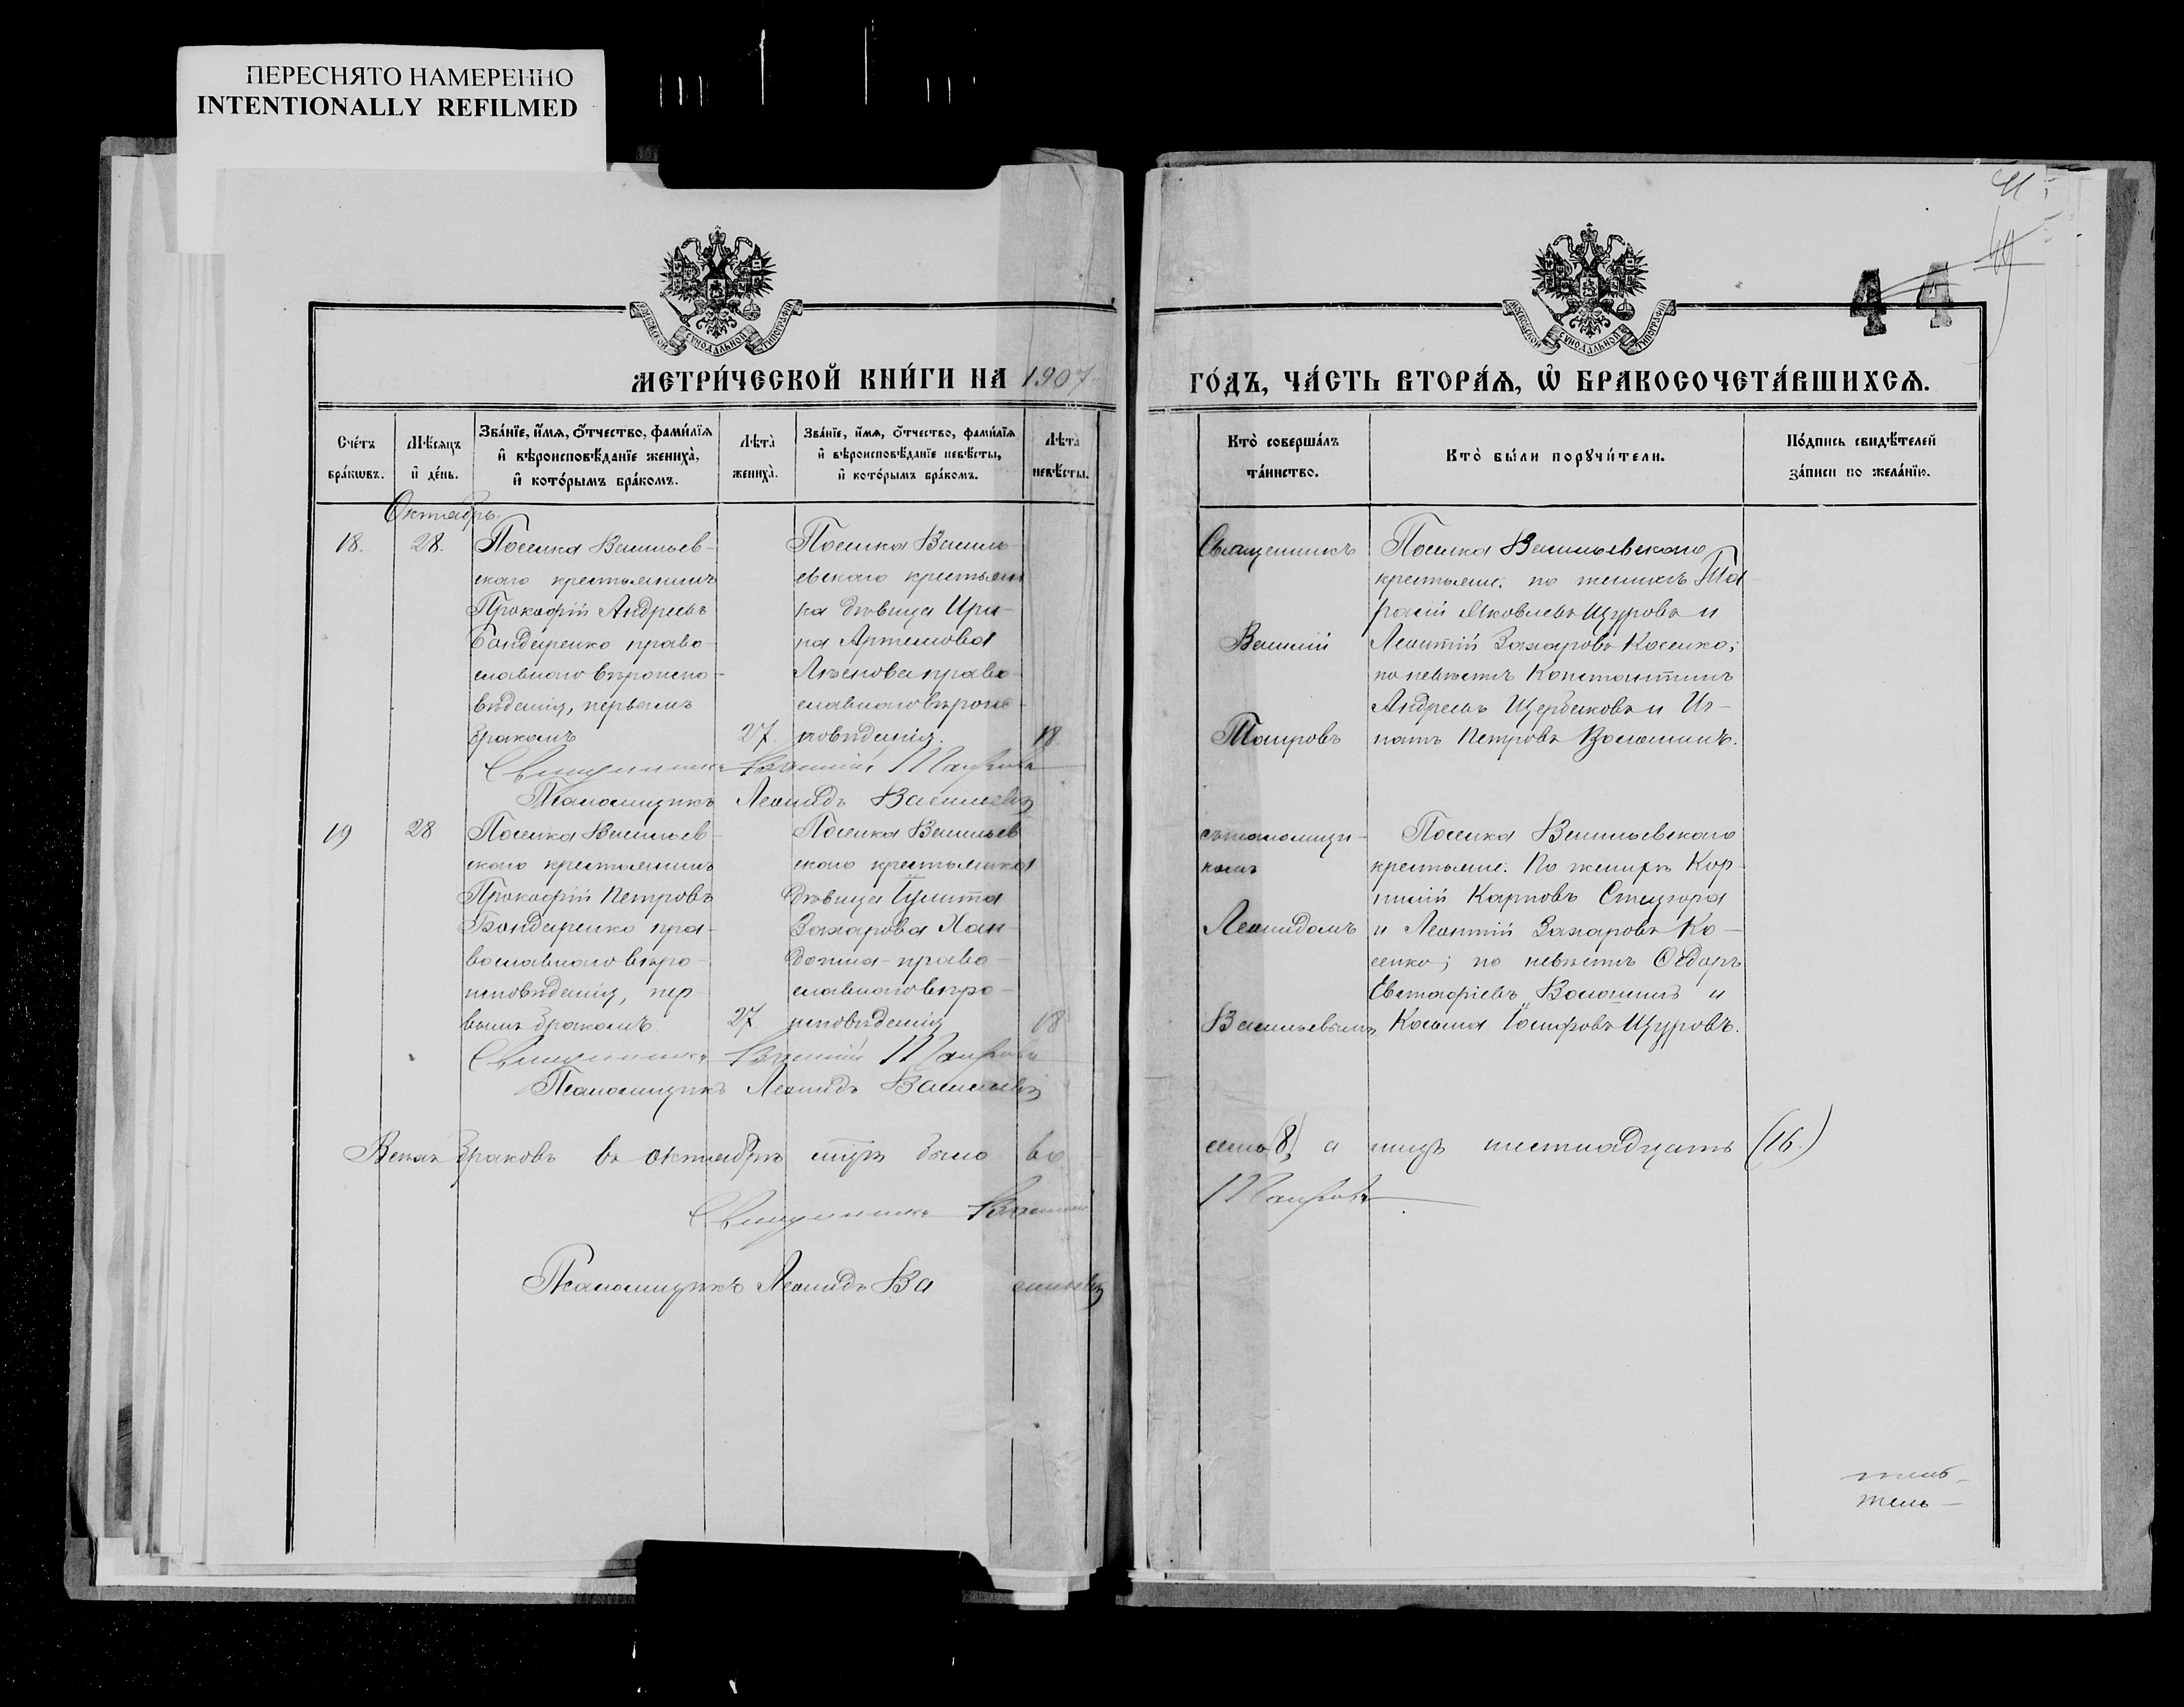 ПЕРЕСНЯТО НАМЕРЕННО
INTENTIONALLY REFILMED
44
МОСКОВСКОЙ СѴНОДАЛЬНОЙ ТИПОГРАФІИ
МОСКОВСКОЙ СѴНОДАЛЬНОЙ ТИПОГРАФІИ
МЕТРИ́ЧЕСКОЙ КНИ́ГИ НА 1907
ГО́ДЪ, ЧА́СТЬ ВТОРА́Ѧ, Ѡ҆ БРАКОСОЧЕТА́ВШИХСѦ.
Сче́тъ
бра́кѡвъ.
Мѣ́сѧцъ
и҆ де́нь.
Зва́нїе, и҆́мѧ, ѻ҆́тчество, фами́лїѧ
и҆ вѣроисповѣ́данїе жениха̀,
и҆ кото́рымъ бра́комъ.
Лѣта̀
жениха̀.
Зва́нїе, и҆́мѧ, ѻ҆́тчество, фами́лїѧ
и҆ вѣроисповѣ́данїе невѣ́сты,
и҆ кото́рымъ бра́комъ.
Лѣта̀
невѣ́сты.
Кто̀ соверша́лъ
та́инство.
Кто̀ бы́ли порꙋчи́тели.
По́дпись свидѣ́телей
за́писи по жела́нїю.
Октябрь.
18.
28.
Поселка Васильев-
скаго крестьянинъ
Прокофій Андреевъ
Бондаренко право-
славнаго вѣроиспо-
вѣданія, первымъ
бракомъ
27.
Поселка Василь-
евскаго крестьян
ка дѣвица Ири-
на Артемова
право-
славнаго вѣроис-
повѣданія.
18.
Священникъ
Василій
Таировъ
Поселка Васильевскаго
крестьяне: по женихѣ Та-
расій Яковлевъ Щуровъ и
Леонтій Захаровъ Косенко;
по невѣстѣ Константинъ
Андреевъ Щербаковъ и Иг-
натъ Петровъ Волошинъ.
Священникъ Василій Таировъ
Псаломщикъ Леонидъ Васильевъ
19
28
Поселка Васильев-
скаго крестьянинъ
Прокофій Петровъ
Бондаренко пра-
вославнаго вѣро-
исповѣданія, пер-
вымъ бракомъ.
27.
Поселка Васильев
скаго крестьянка
дѣвица
Захарова Хан-
право-
славнаго вѣро-
исповѣданія
18
съ псаломщи-
комъ
Леонидомъ
Васильевымъ
Поселка Васильевскаго
крестьяне: По женихѣ Кор-
нилій Карповъ
и Леонтій Захаровъ Ко-
сенко; по невѣстѣ Ѳедоръ
Евстафіевъ Волошинъ и
Косьма Іосифовъ Щуровъ.
Священникъ Василій Таировъ
Псаломщикъ Леонидъ Васильевъ
Всѣхъ браковъ въ октябрѣ мцѣ было во
семь (8), а лицъ шестнадцать (16.)
Священникъ Василій
Таировъ
Псаломщикъ Леонидъ Ва сильевъ